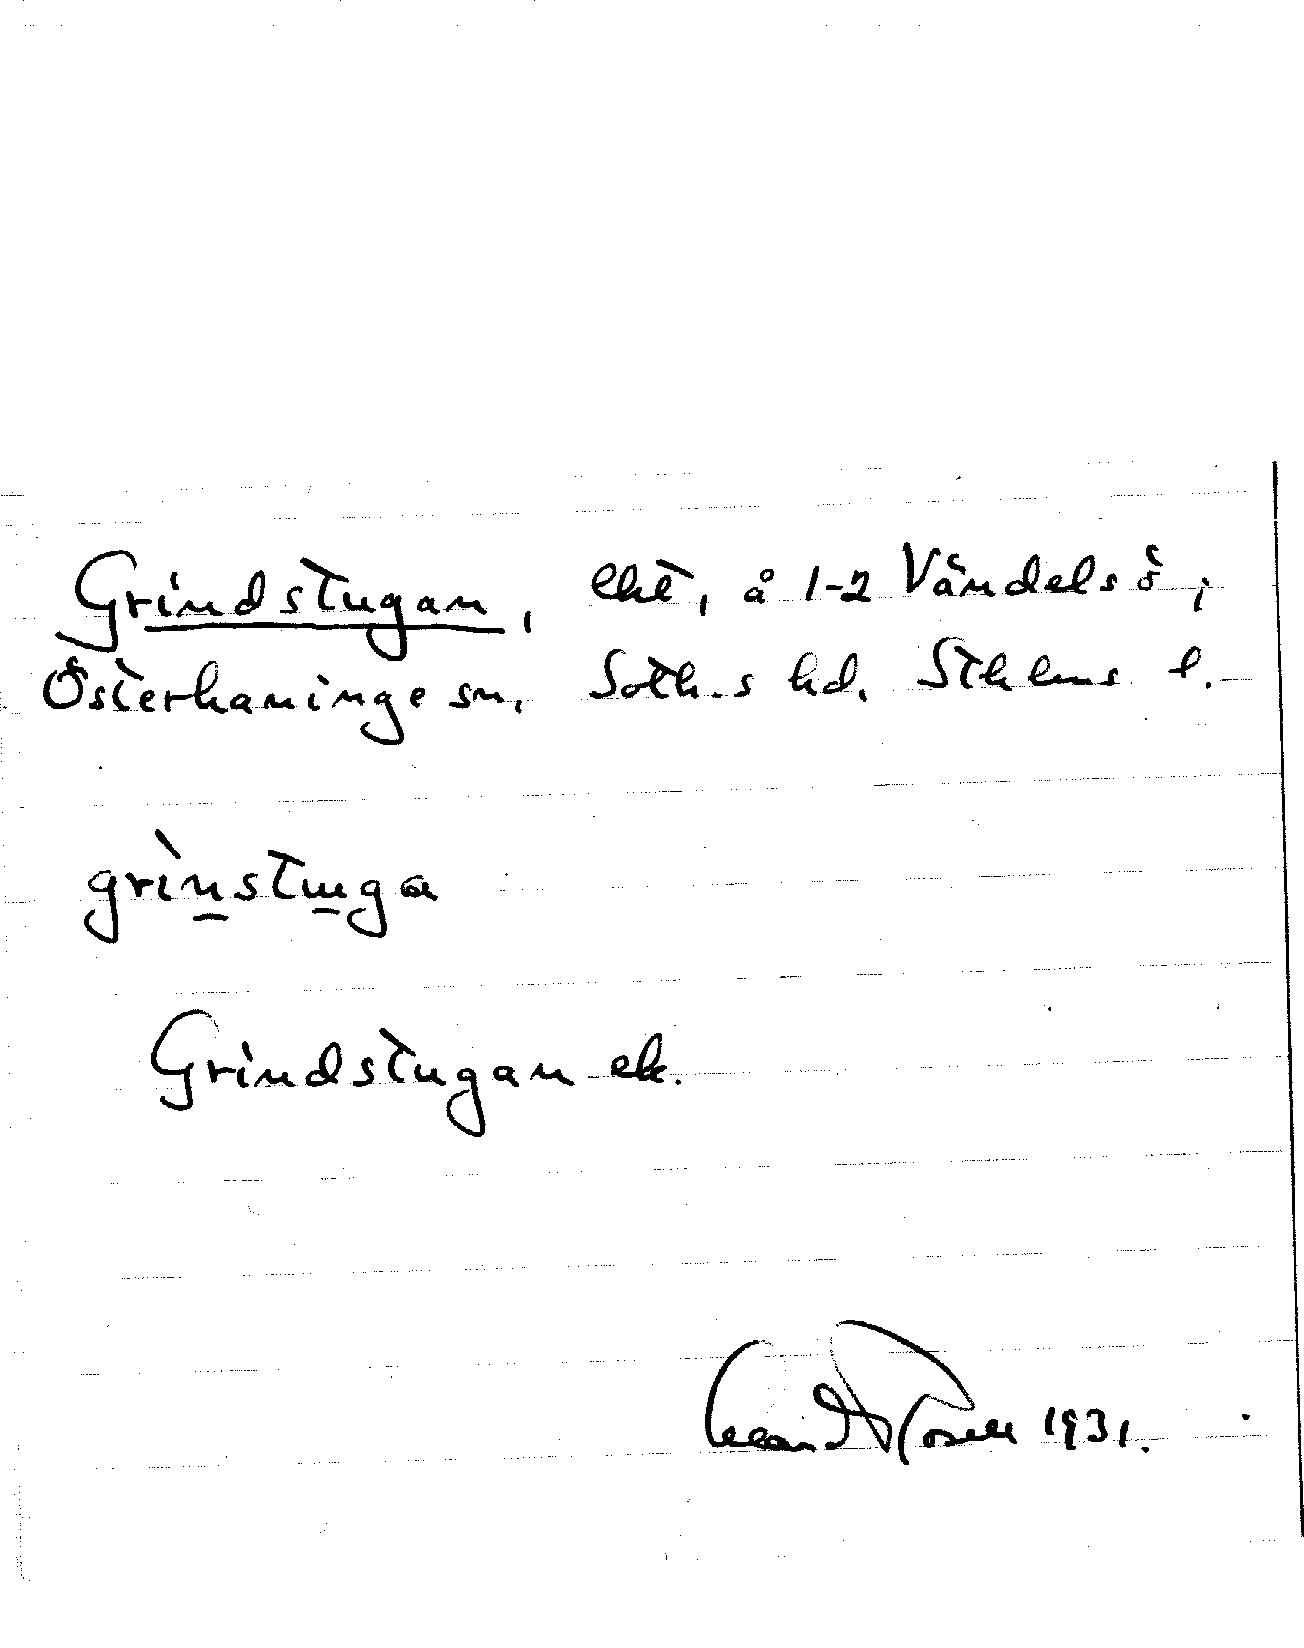 Grindstugan, lht, å 1-2 Vändelsö,
Österhaninge sn, Soth.s hd. Sthlms l.
grìnstuga
Grindstugan ek.
1931.